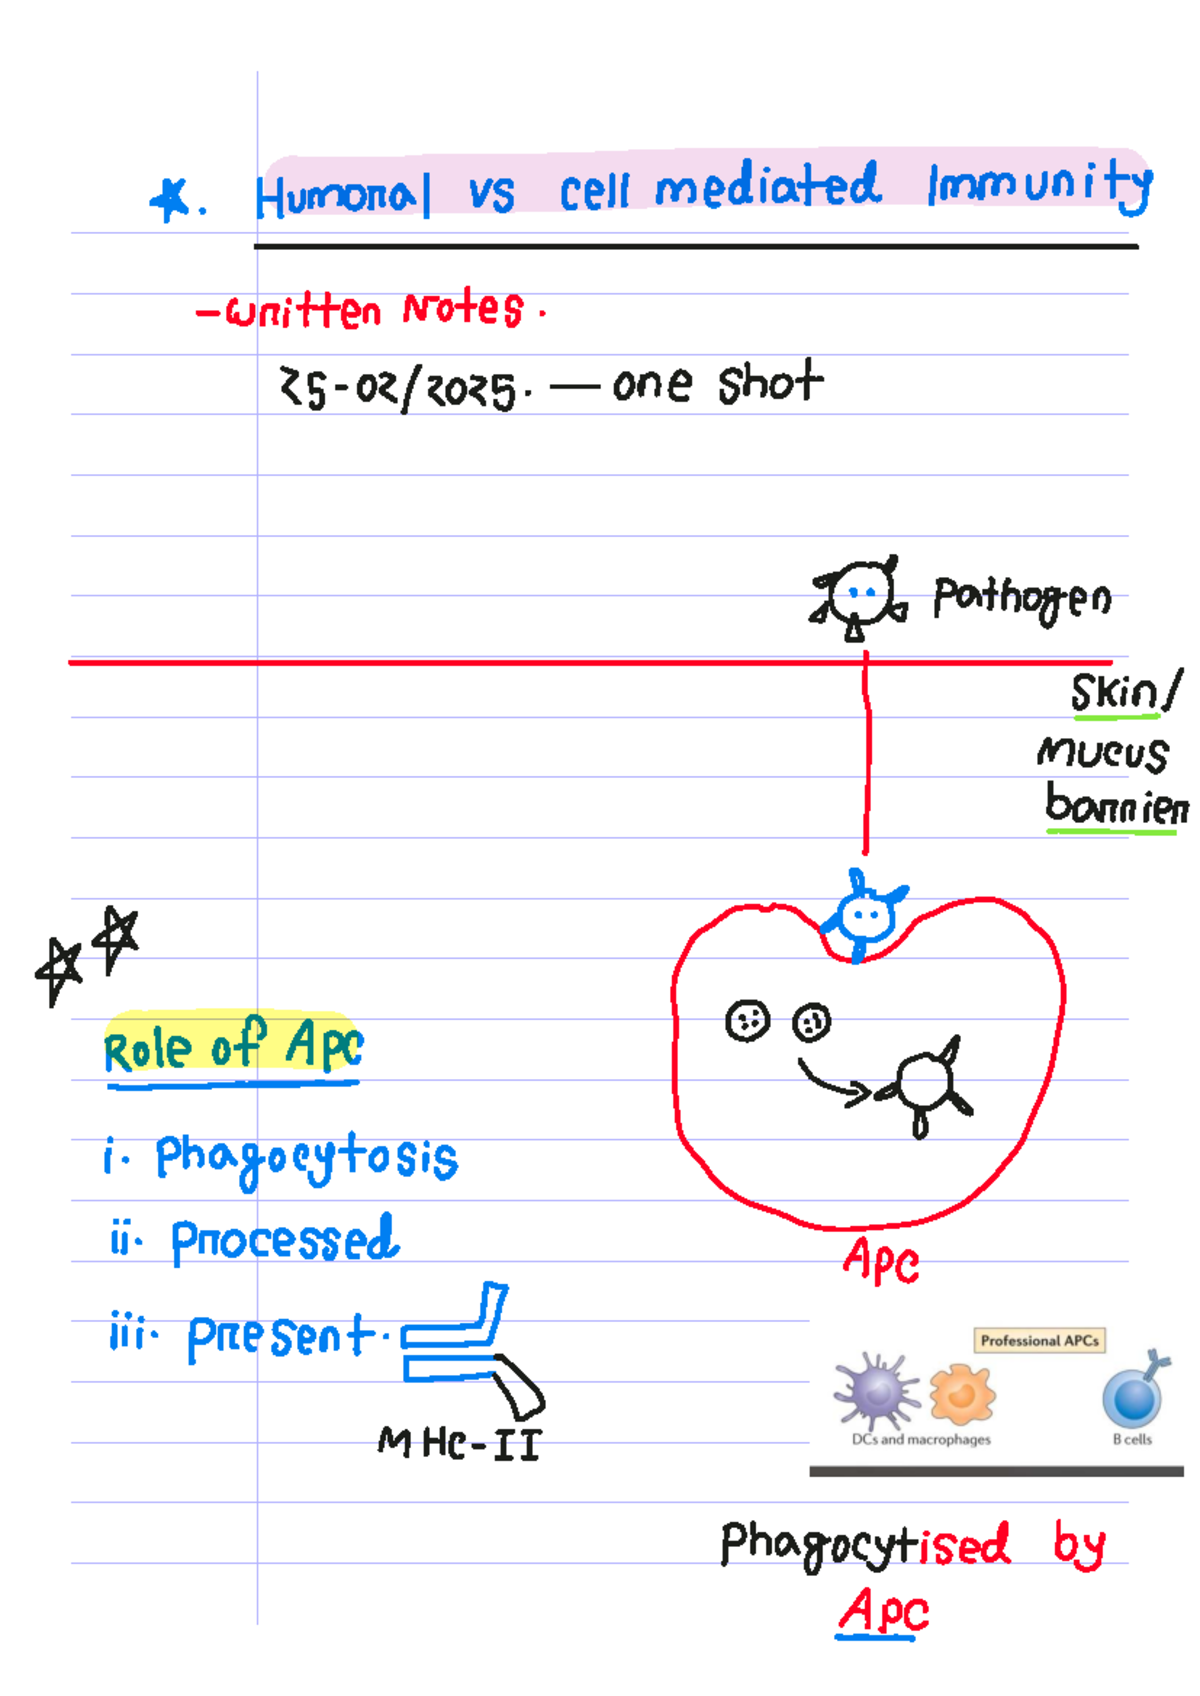 *. Humoral vs cell mediated Immunity
-written Notes.
25-02/2025. — one shot
Pathogen
Skin/
Mucus
barrier
Role of Apc
i. Phagocytosis
ii. Processed
Apc
iii. Present.
MHC-II
Professional APCs
DCs and macrophages
B cells
Phagocytised by
Apc